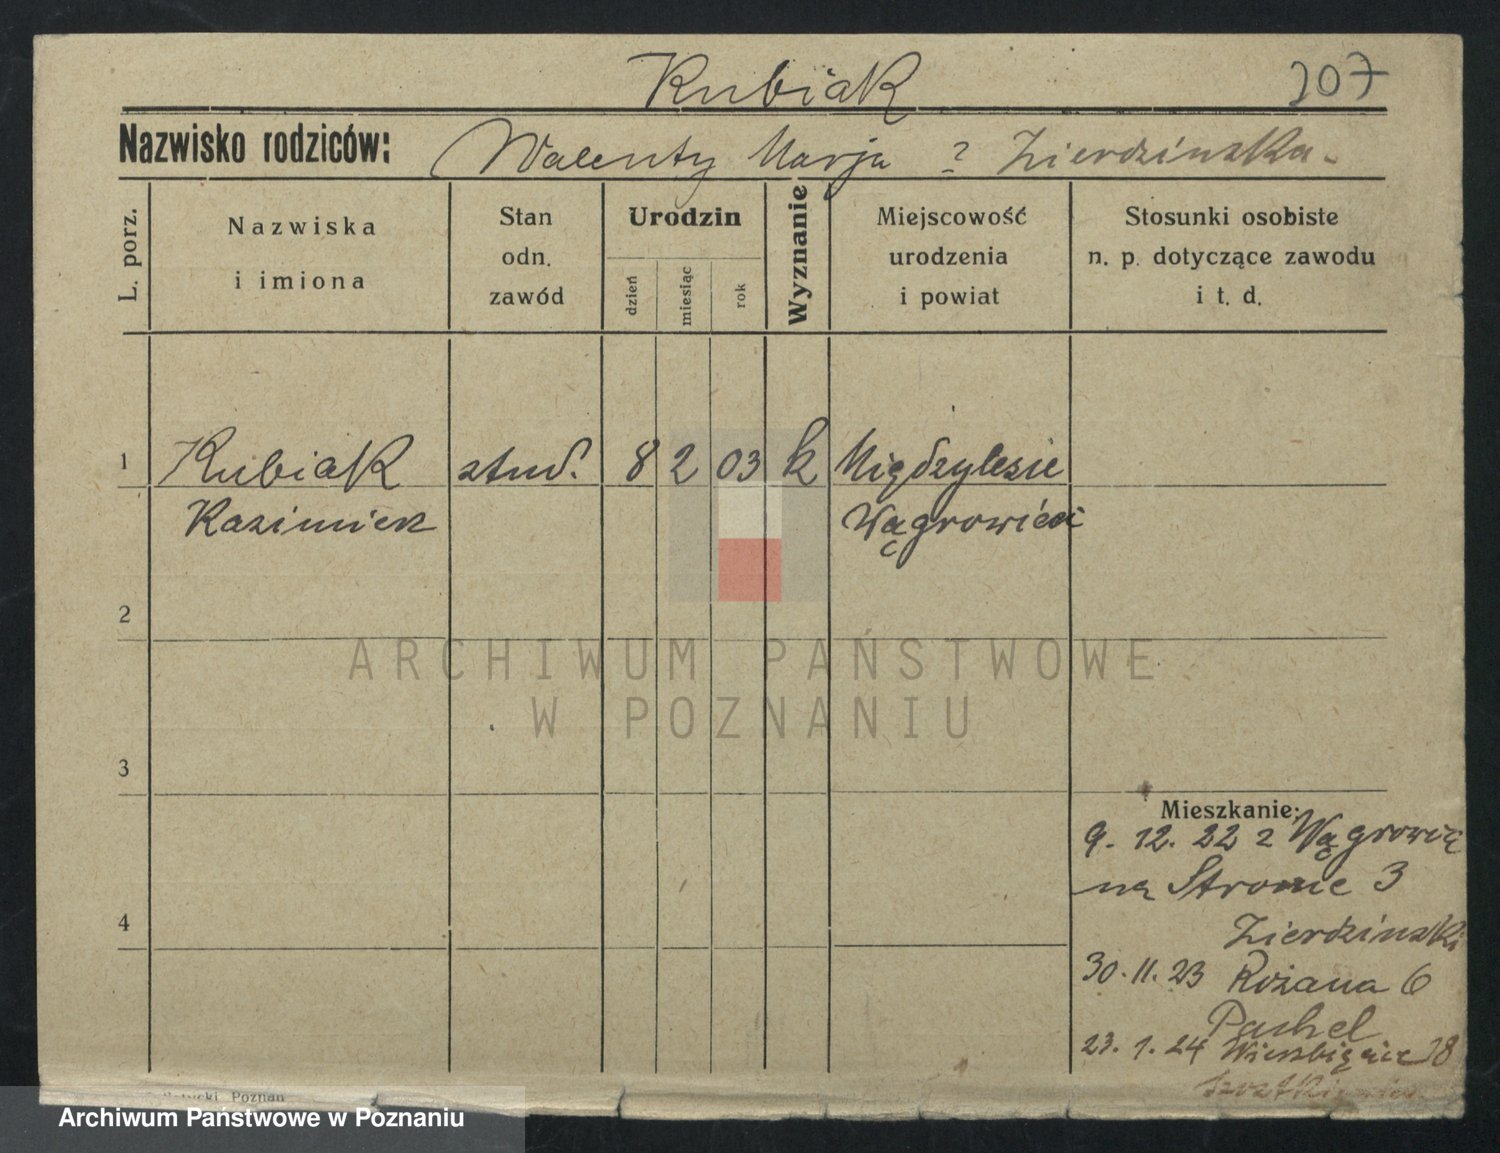 Kubiak
207
Nazwisko rodziców: Walenty Marja ? Zierdzinska
L. porz.
Nazwiska
i imiona
Stan
odn.
zawód
Urodzin
dzień
miesiąc
rok
Wyznanie
Miejscowość
urodzenia
i powiat
Stosunki osobiste
n. p. dotyczące zawodu
i t. d.
1 Kubiak stud. 8 2 03 k Międzylesie
Kazimierz Wągrowiec
2
3
4
Mieszkanie:
9. 12. 22 z Wągrowic
na Stromie 3
Zierdzinski
30. 11. 23 Różana 6
Pachel
23. 1. 24 Wierzbięcice 18
ARCHIWUM PAŃSTWOWE
W POZNANIU
Poznań
Archiwum Państwowe w Poznaniu